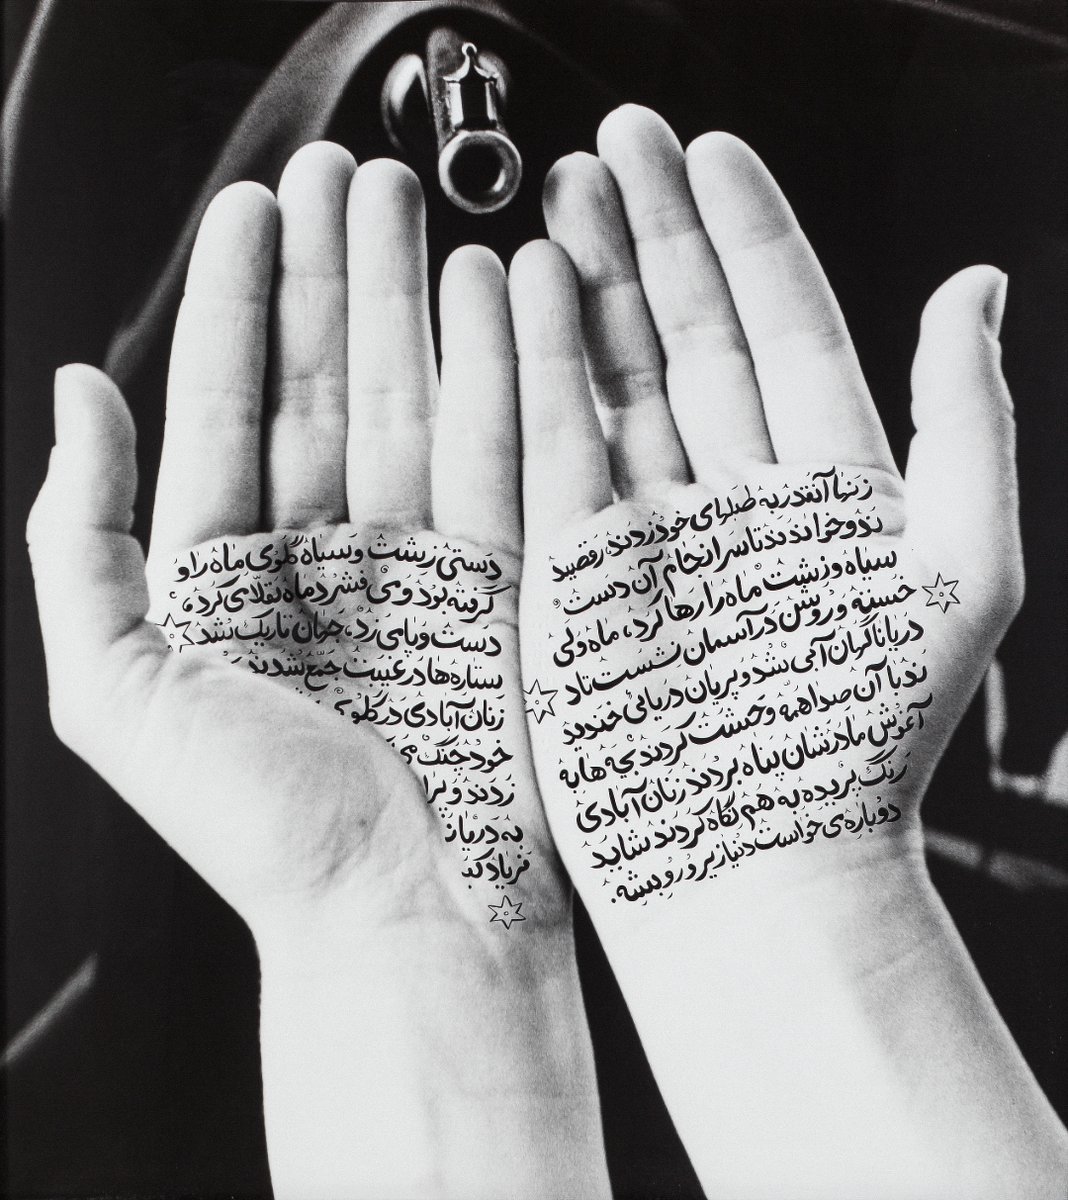 زنها آنقدر به طبلهای خود زدند، رقصید
ند و خواندند تا سرانجام آن دست
سیاه و زشت ماه را رها کرد، ماه ولی
خسته و روشن در آسمان نشست
دریا ناگهان آبی شد و پریان دریائی خندید
ند با آن صدا همه وحشت کردند بچه ها به
آغوش مادرشان پناه بردند زنان آبادی
رنگ پریده به هم نگاه کردند شاید
دوباره ی خواست دنیا زیر و رو بیشه.
دستی زشت و سیاه گلوی ماه را و
گرفته بود و می فشرد ماه تقلّا می کرد،
دست و پا می زد، جهان تاریک شد
ستاره ها در غیبت جمع شدند
زنان آبادی در گلوی
خود چنگ می
زدند و
به دریا
فریاد